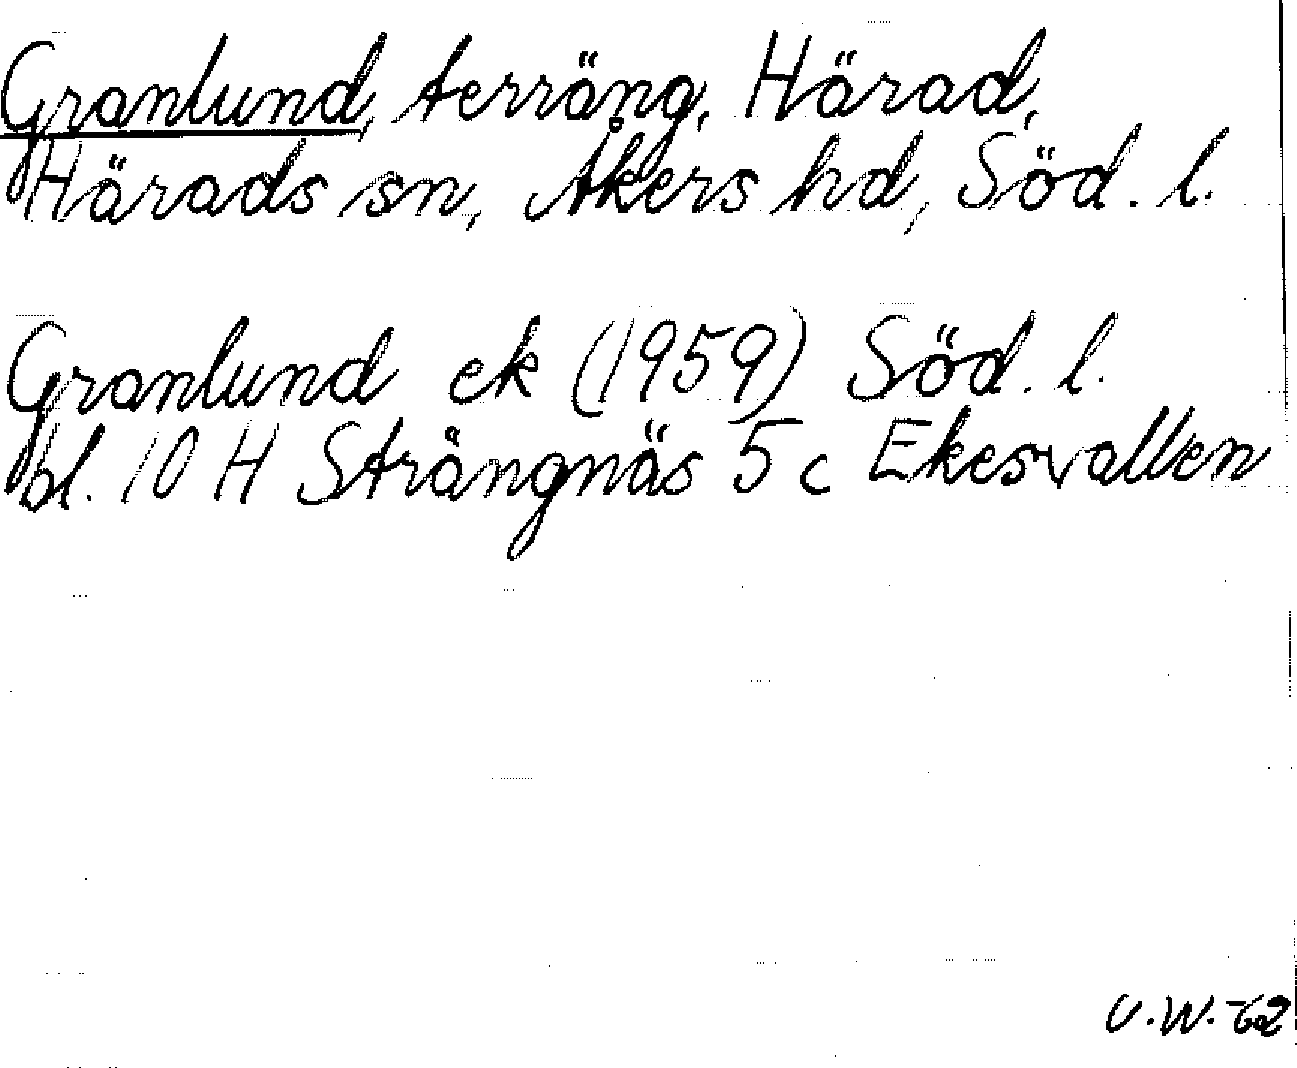 Granlund, terräng, Härad,
Härads sn, Åkers hd, Söd. l.
Granlund ek (1959) Söd. l.
bl. 10 H Strängnäs 5 c Ekesvallen
U.W. -62